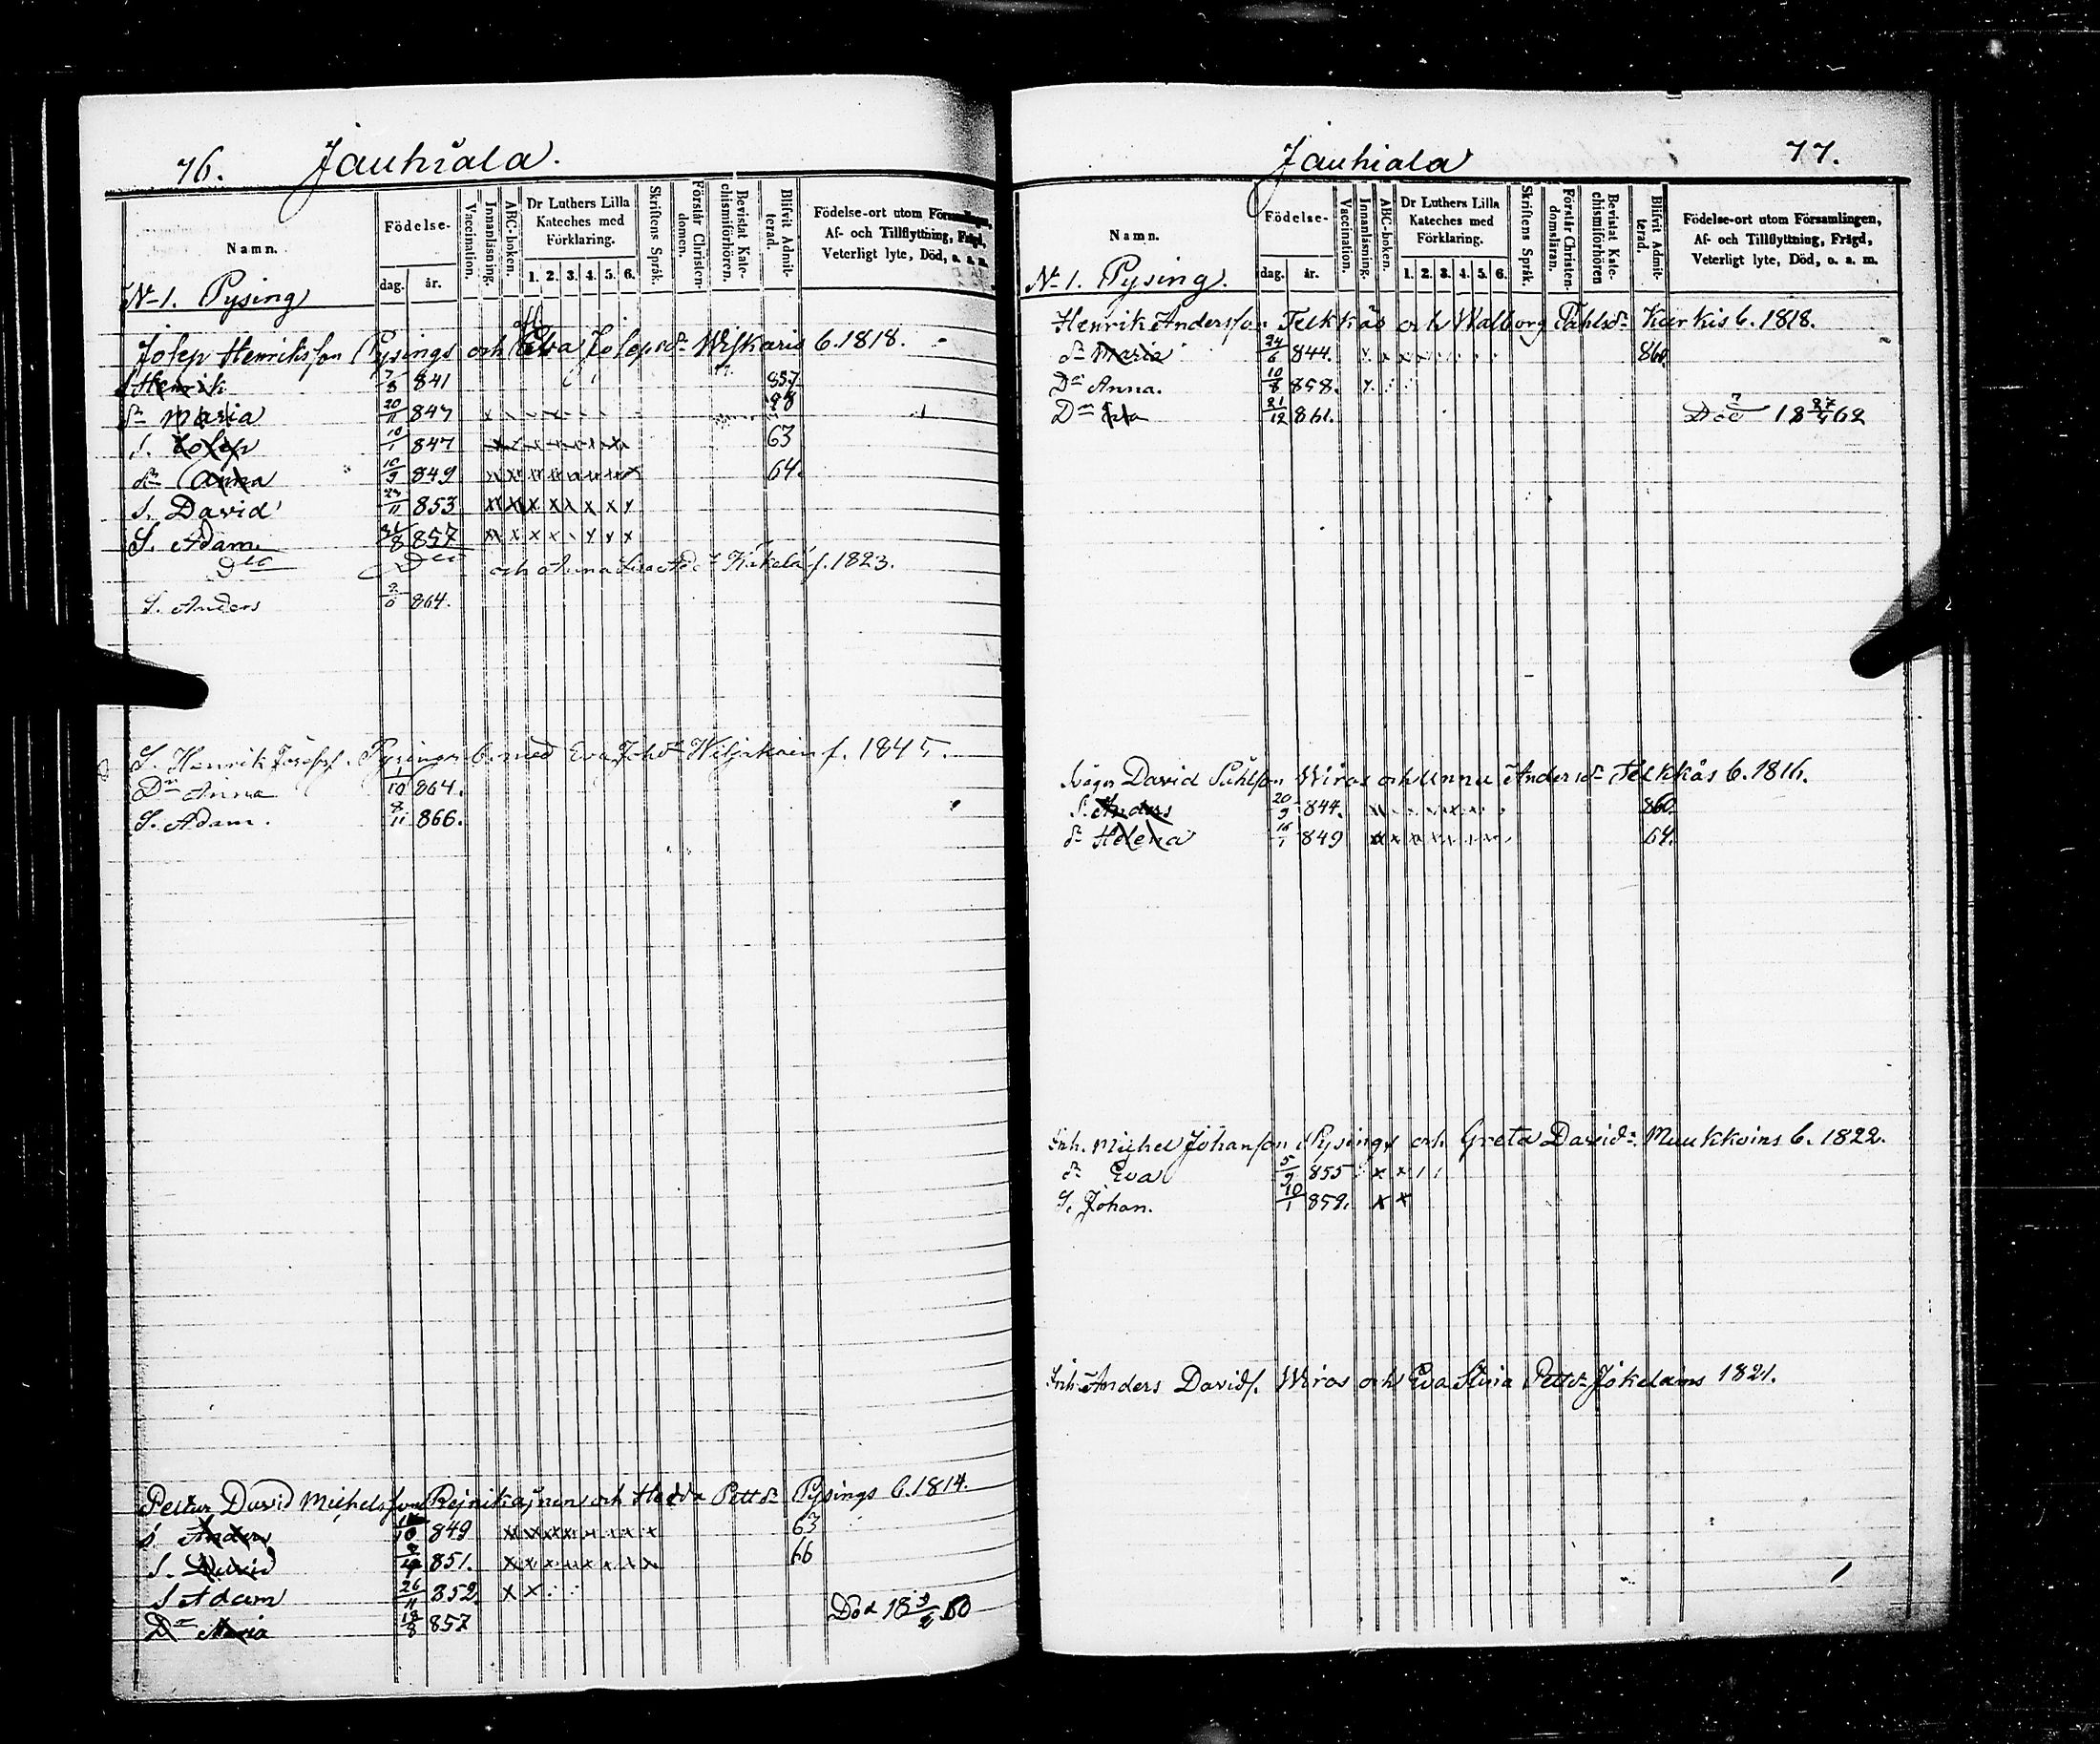 76. Jauhiala.
Namn.
Födelse-
dag. år.
Vaccination.
Innanläsning.
ABC-boken.
Dr Luthers Lilla Kateches med Förklaring.
1. 2. 3. 4. 5. 6.
Skriftens Språk.
Förstår Christen-domen.
Bevistat Kate-chismiförhören.
Blifvit Admit-terad.
Födelse-ort utom Församlingen,
Af- och Tillflyttning, Frägd,
Veterligt lyte, Död, o. s. m.
No 1. Pysing
Josep Henriksson Pysings och Eva Josepsdr Wiskaris b. 1818.
S. Henrik 7/8 841 857
dr Maria 20/11 847 x 98
S. Josep 10/1 847 63
dr Anna 10/9 849 64.
S. David 23/11 853
S. Adam. 857
Dto Dto och Anna Lisa Käkelä f. 1823.
S. Anders 864.
S. Henrik Josefss. Pysingen b. med Eva Johdr f. 1845.
Dr Anna 1/10 864.
S. Adam. 8/11 866.
Petter David Michelsson Rejnikajnen och Hedda Pettdr Pysings b. 1814.
s. Anders 10 849 63
S. David 851. 66
S Adam 26/11 852 x x
Dr Maria 18/8 857 Död 18 3/2 60
Jauhiala 77.
Namn.
Födelse-
dag. år.
Vaccination.
Innanläsning.
ABC-boken.
Dr Luthers Lilla Kateches med Förklaring.
1. 2. 3. 4. 5. 6.
Skriftens Språk.
Förstår Christen-domsläran.
Bevistat Kate-chismiförhören
Blifvit Admit-terad.
Födelse-ort utom Församlingen,
Af- och Tillflyttning, Frägd,
Veterligt lyte, Död, o. s. m.
No 1. Pysing.
Henrik Andersson Telkkäs och Walborg Påhlsdr Karkis b. 1818.
dr Maria 24/6 844. 860
Dr Anna. 10/8 858.
Dr Eva 21/12 861. Död 18 27/4 62
David Påhlson Wiros och Anna Andersdr Telkkäs b. 1816.
S. Anders 20/9 844. 860.
dr Helena 849 64.
Inh. Michel Johanson Pysings och Greta Davidr Muukkoins b. 1822.
dr Eva 5/9 855 x x
S. Johan. 10/1 859. x x
Inh. Anders Davids. Wiros och Eva Stina Pettdr Jokelains 1821.